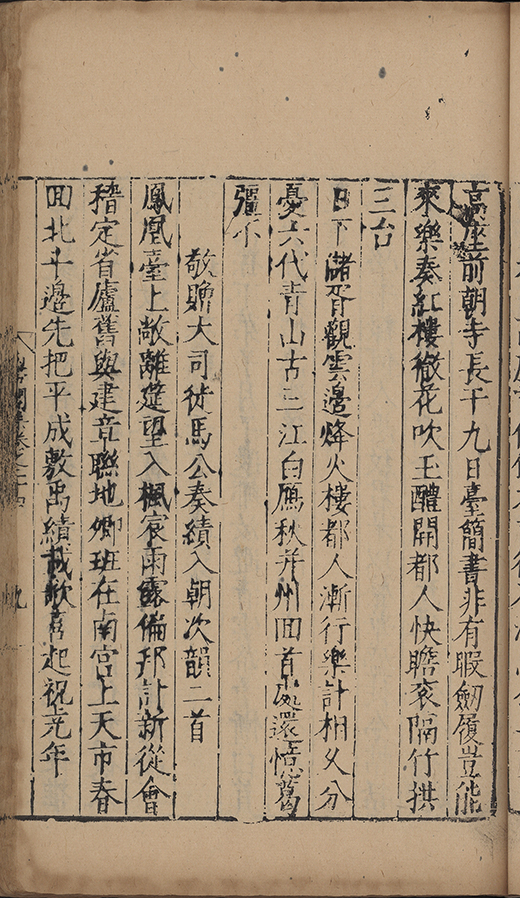 高座前朝寺長干九日臺簡書非有暇劒履豈能
來樂奏紅樓徹花吹玉醴開都人快瞻袞隔竹拱
三台
日下儲胥觀雲邊烽火樓都人漸行樂計相又分
憂六代青山古三江白鴈秋并州回首處還悟舊
彊不
敬贈大司徒馬公奏績入朝次韻二首
鳳凰臺上敞離筵望入楓宸雨露偏邦計新從會
稽定省廬舊與建章聯地卿班在南宮上天市春
回北斗邊先把平成敷禹績載歌喜起祝堯年